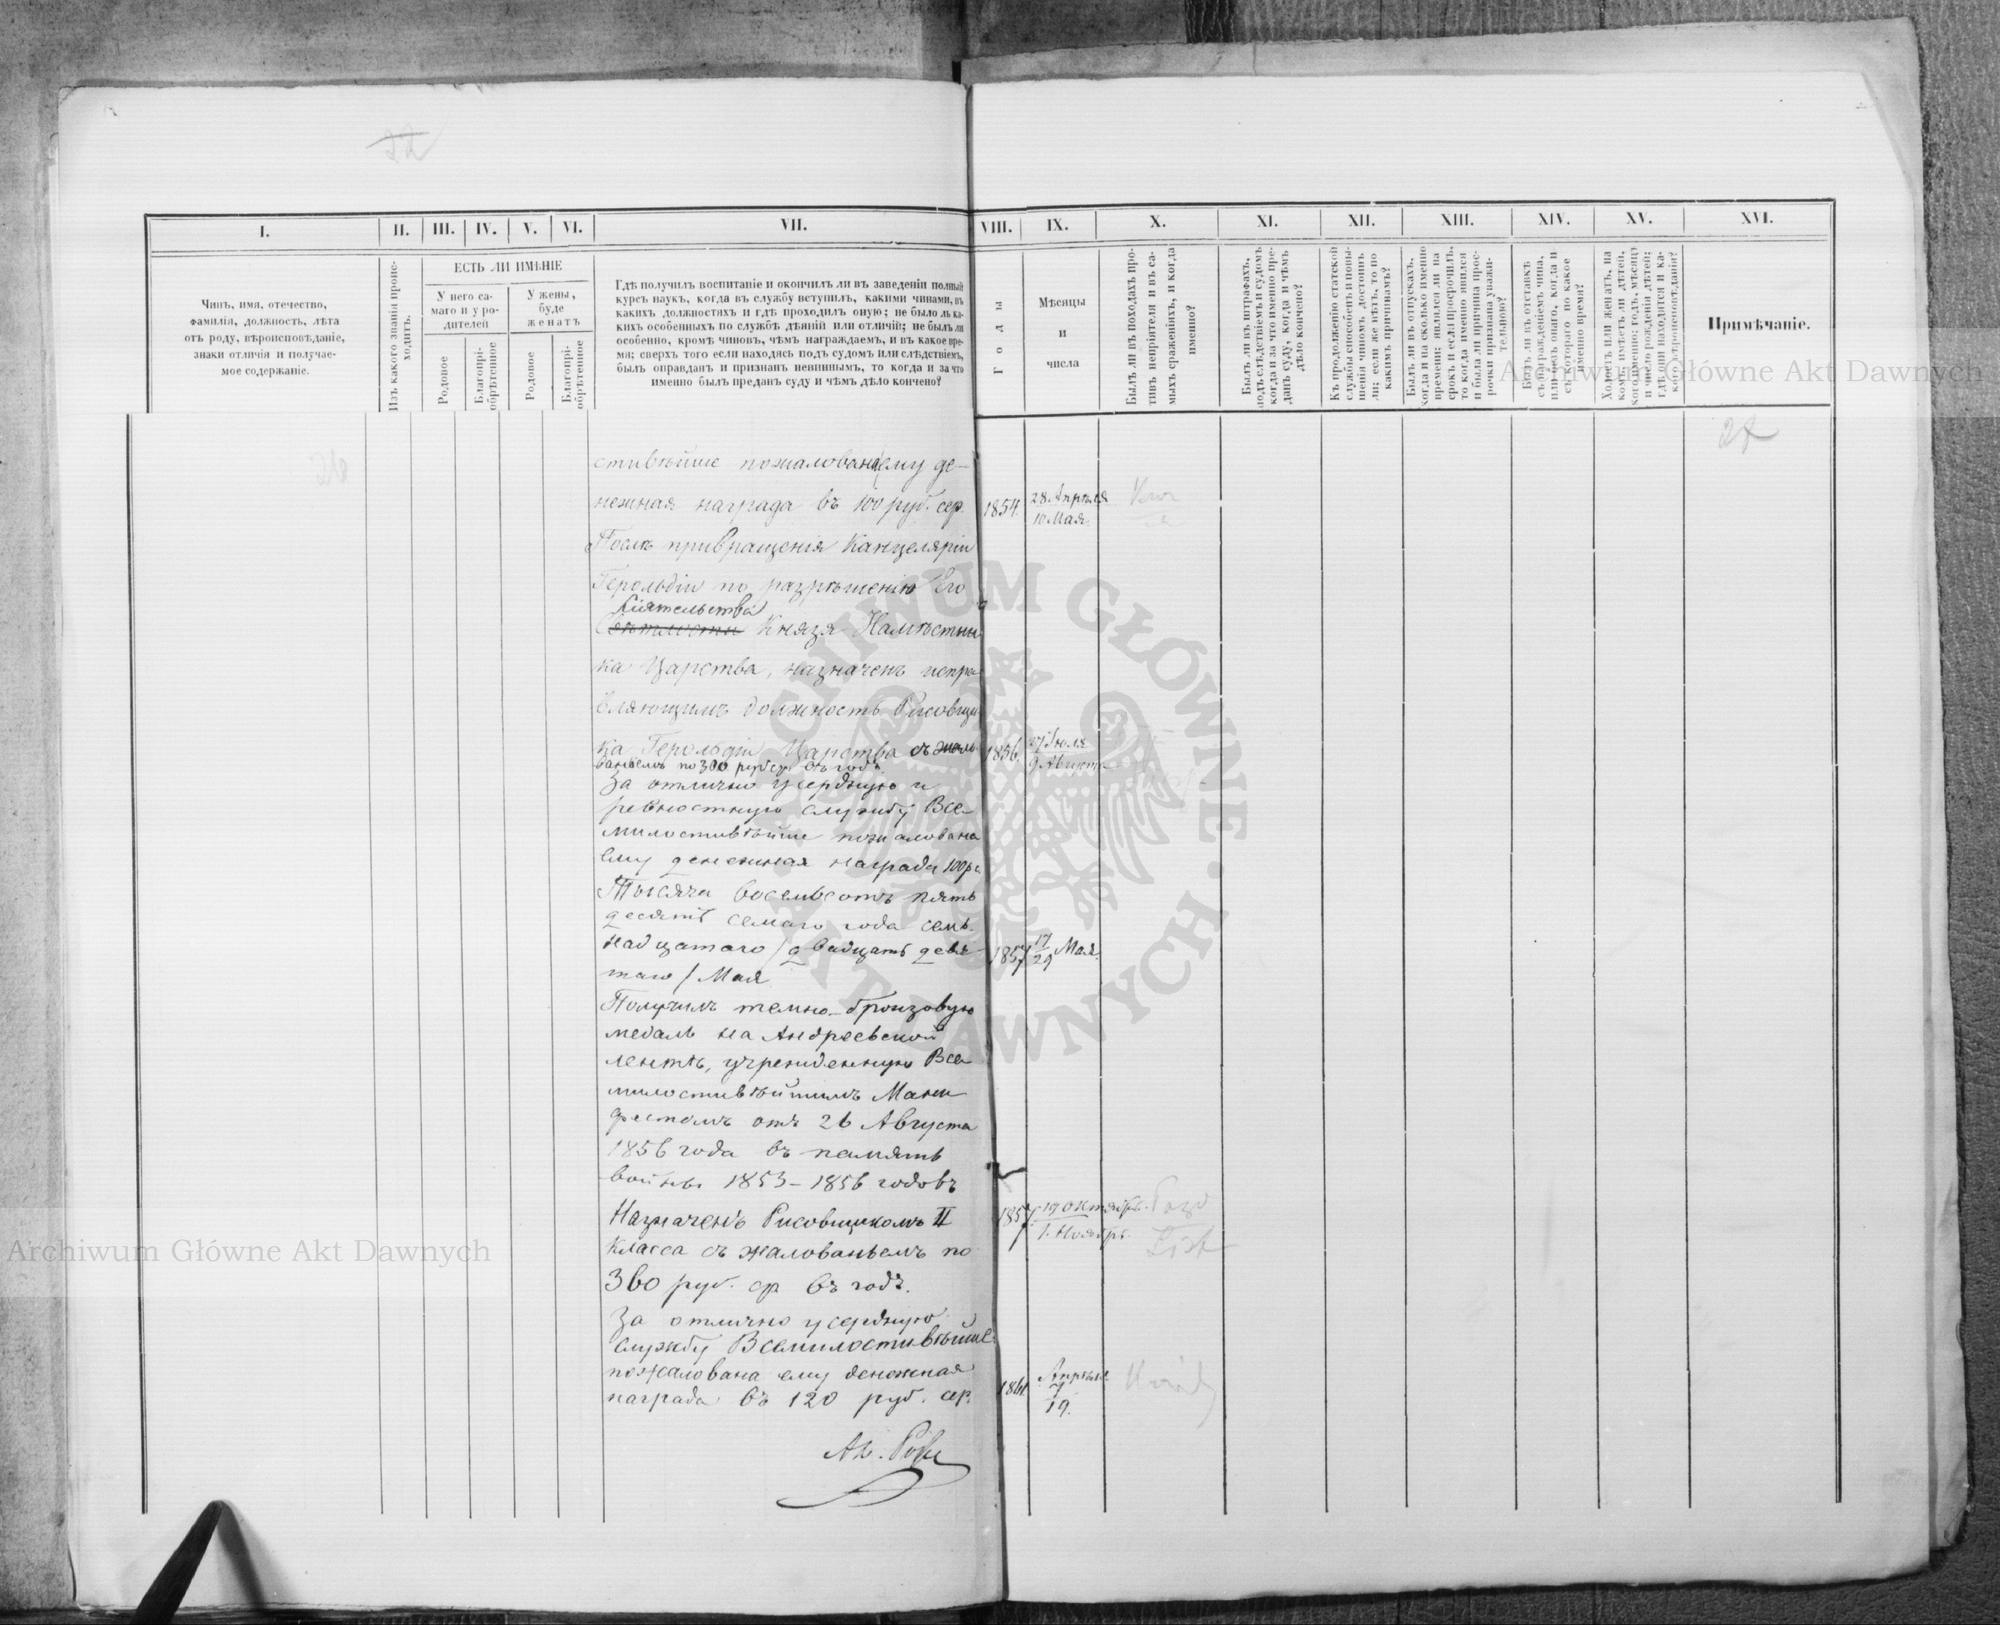 I. II. III. IV. V. VI. VII. VIII. IX. X. XI. XII. XIII. XIV. XV. XVI.
Чинъ, имя, отечество,
фамилія, должность, лѣта
отъ роду, вѣроисповѣданіе,
знаки отличія и получае-
мое содержаніе.
Изъ какого званія проис-
ходитъ.
ЕСТЬ ЛИ ИМѢНІЕ
У него са-
маго и у ро-
дителей
У жены,
буде
женатъ
Родовое
Благопрі-
обрѣтенное
Родовое
Благопрі-
обрѣтенное
Гдѣ получилъ воспитаніе и окончилъ ли въ заведеніи полный
курсъ наукъ, когда въ службу вступилъ, какими чинами, въ
какихъ должностяхъ и гдѣ проходилъ оную; не было ль ка-
кихъ особенныхъ по службѣ дѣяній или отличій; не былъ ли
особенно, кромѣ чиновъ, чѣмъ награждаемъ, и въ какое вре-
мя; сверхъ того если находясь подъ судомъ или слѣдствіемъ,
былъ оправданъ и признанъ невиннымъ, то когда и за что
именно былъ преданъ суду и чѣмъ дѣло кончено?
Годы
Мѣсяцы
и
числа
Былъ ли въ походахъ про-
тивъ непріятеля и въ са-
мыхъ сраженіяхъ, и когда
именно?
Былъ ли въ штрафахъ,
подъ слѣдствіемъ и судомъ
когда и за что именно пре-
данъ суду, когда и чѣмъ
дѣло кончено?
Къ продолженію статской
службы способенъ и повы-
шенія чиномъ достоинъ
ли; если же нѣтъ, то по
какимъ причинамъ?
Былъ ли въ отпускахъ,
когда и на сколько именно
времени; явился ли на
срокъ и если просрочилъ,
то когда именно явился
и была ли причина прос-
рочки признана уважи-
тельною?
Былъ ли въ отставкѣ
съ награжденіемъ чина,
или безъ онаго, когда и
съ котораго по какое
именно время?
Холостъ или женатъ, на
комъ, имѣетъ ли дѣтей,
кого именно; годъ, мѣсяцъ
и число рожденія дѣтей;
гдѣ они находятся и ка-
кого вѣроисповѣданія?
Примѣчаніе.
26
27
стивѣйше пожалована ему де-
нежная награда въ 100 руб. сер.
1854. 28 Апрѣля
10 Мая.
Послѣ привращенія Канцеляріи
Герольдіи по разрѣшенію Его
Сіятельства
Свѣтлости Князя Намѣстни
ка Царства, назначенъ испра
вляющимъ должность Рисовщи
ка Герольдіи Царства съ жало
ваньемъ по 300 руб ср. въ годъ
1856. 27 Іюля
9 Августа
За отлично усердную и
ревностную службу Все-
милостивѣйше пожалована
ему денежная награда 100 р с.
Тысяча восемьсотъ пять
десятъ семаго года семь-
надцатаго / двадцать девя-
таго / Мая
1857 17/29 Мая.
Получилъ темно-бронзовую
медаль на Андреевской
лентѣ, учрежденную Все
милостивѣйшимъ Мани
фестомъ отъ 26 Августа
1856 года въ память
войны 1853-1856 годовъ
Назначенъ Рисовщикомъ II
класса съ жалованьемъ по
360 руб. ср въ годъ.
1857. 19 Октября.
1. Ноября.
За отлично усердную
службу Всемилостивѣйше
пожалована ему денежная
награда въ 120 руб. сер.
1861. Апрѣля
7
19.
Archiwum Główne Akt Dawnych
Archiwum Główne Akt Dawnych
ARCHIWUM GŁÓWNE · AKT DAWNYCH ·